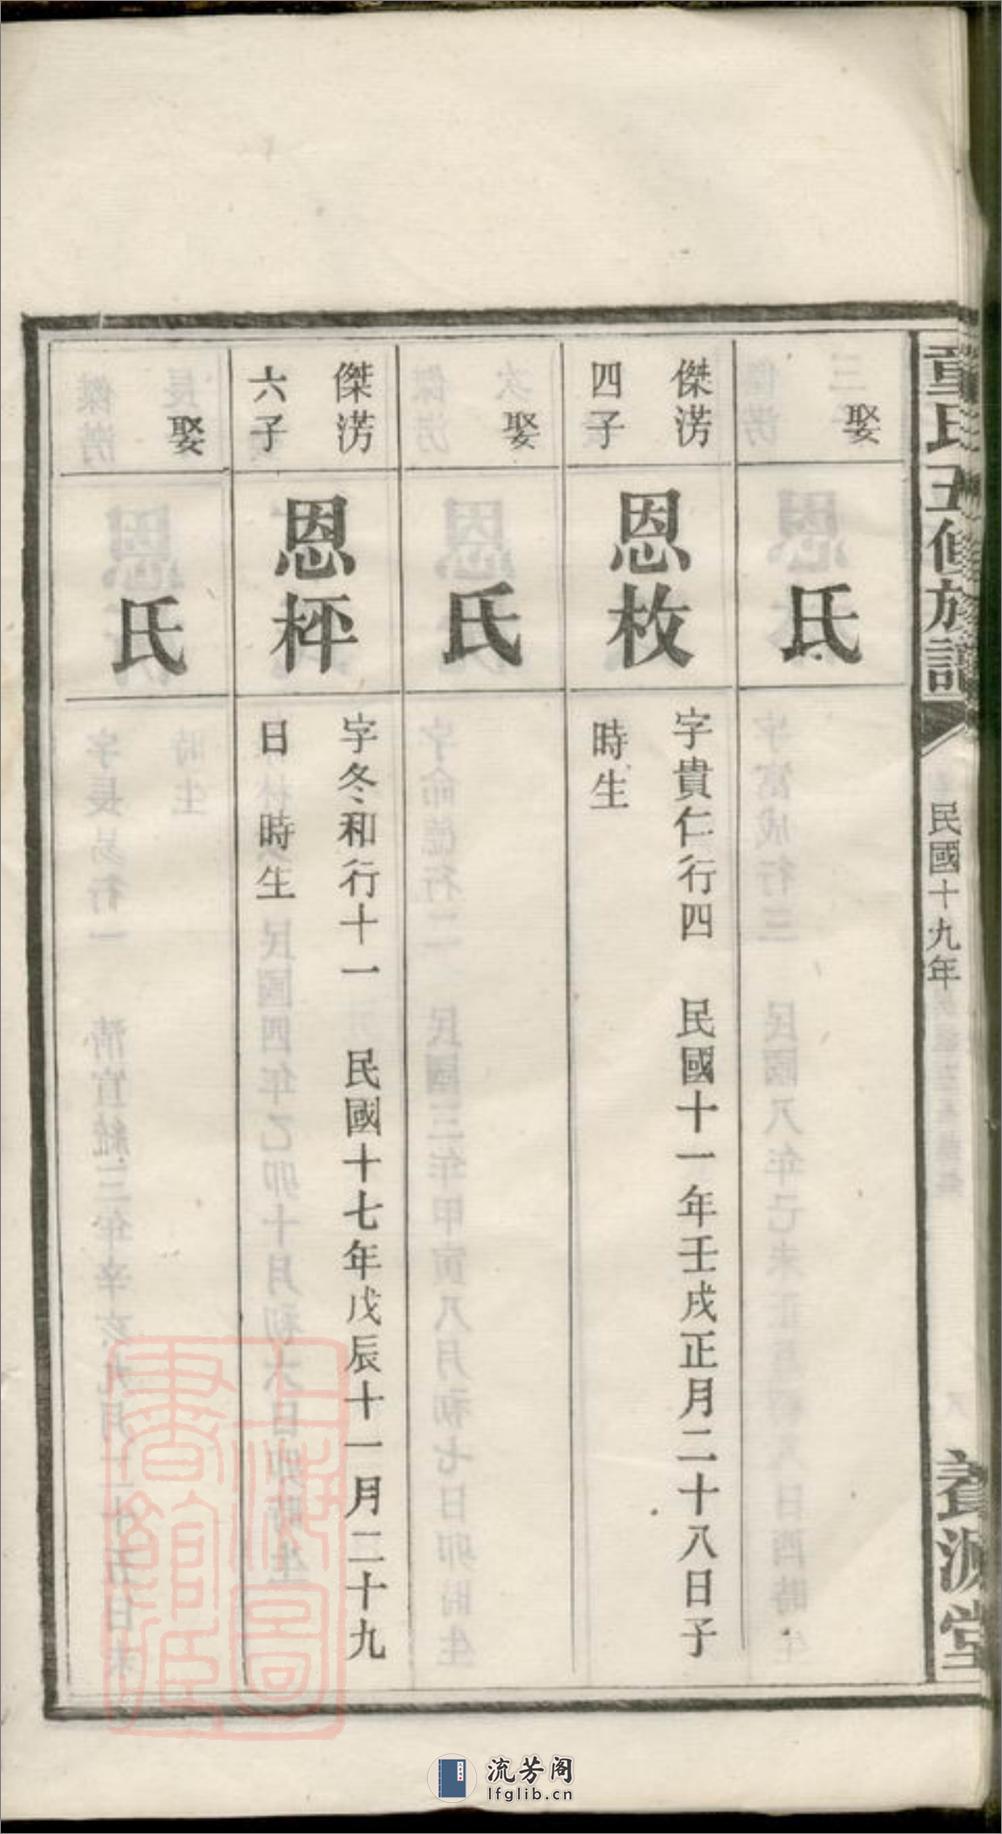 童氏五修族譜
民國十九年
養源堂
娶
氏
傑淓
四子
恩枚
字貴仁行四 民國十一年壬戌正月二十八日子
時生
娶
氏
傑淓
六子
恩枰
字冬和行十一 民國十七年戊辰十一月二十九
日 時生
娶
氏
上海圖
書館藏
流芳阁
lfglib.cn